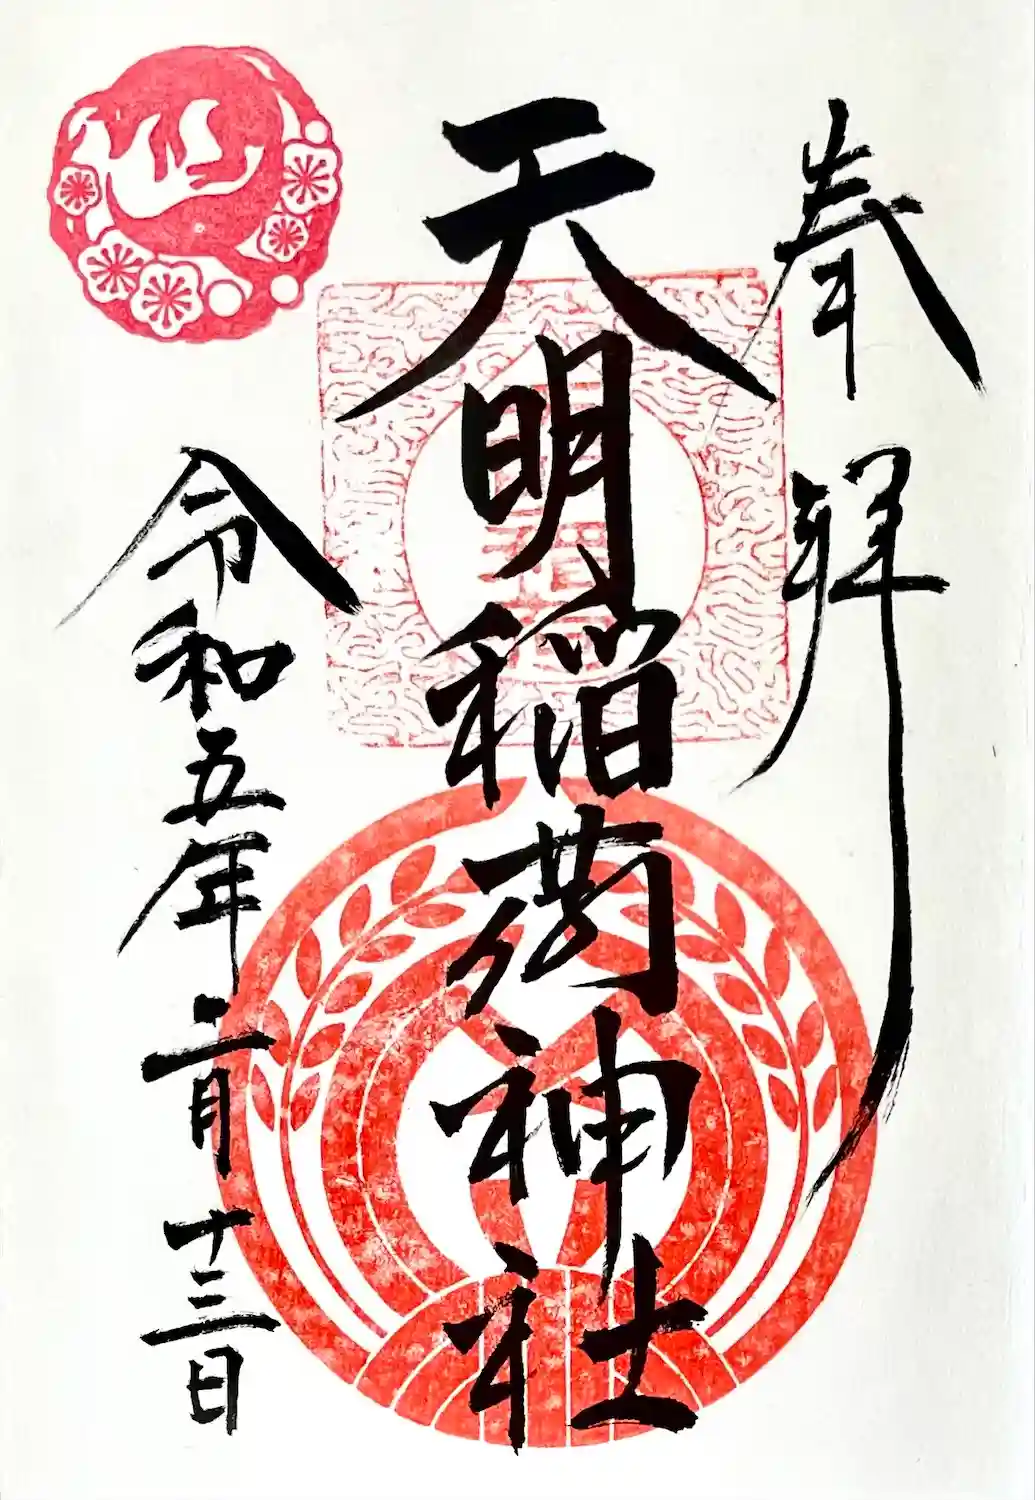 奉拝
天明稲荷神社
令和五年二月十三日